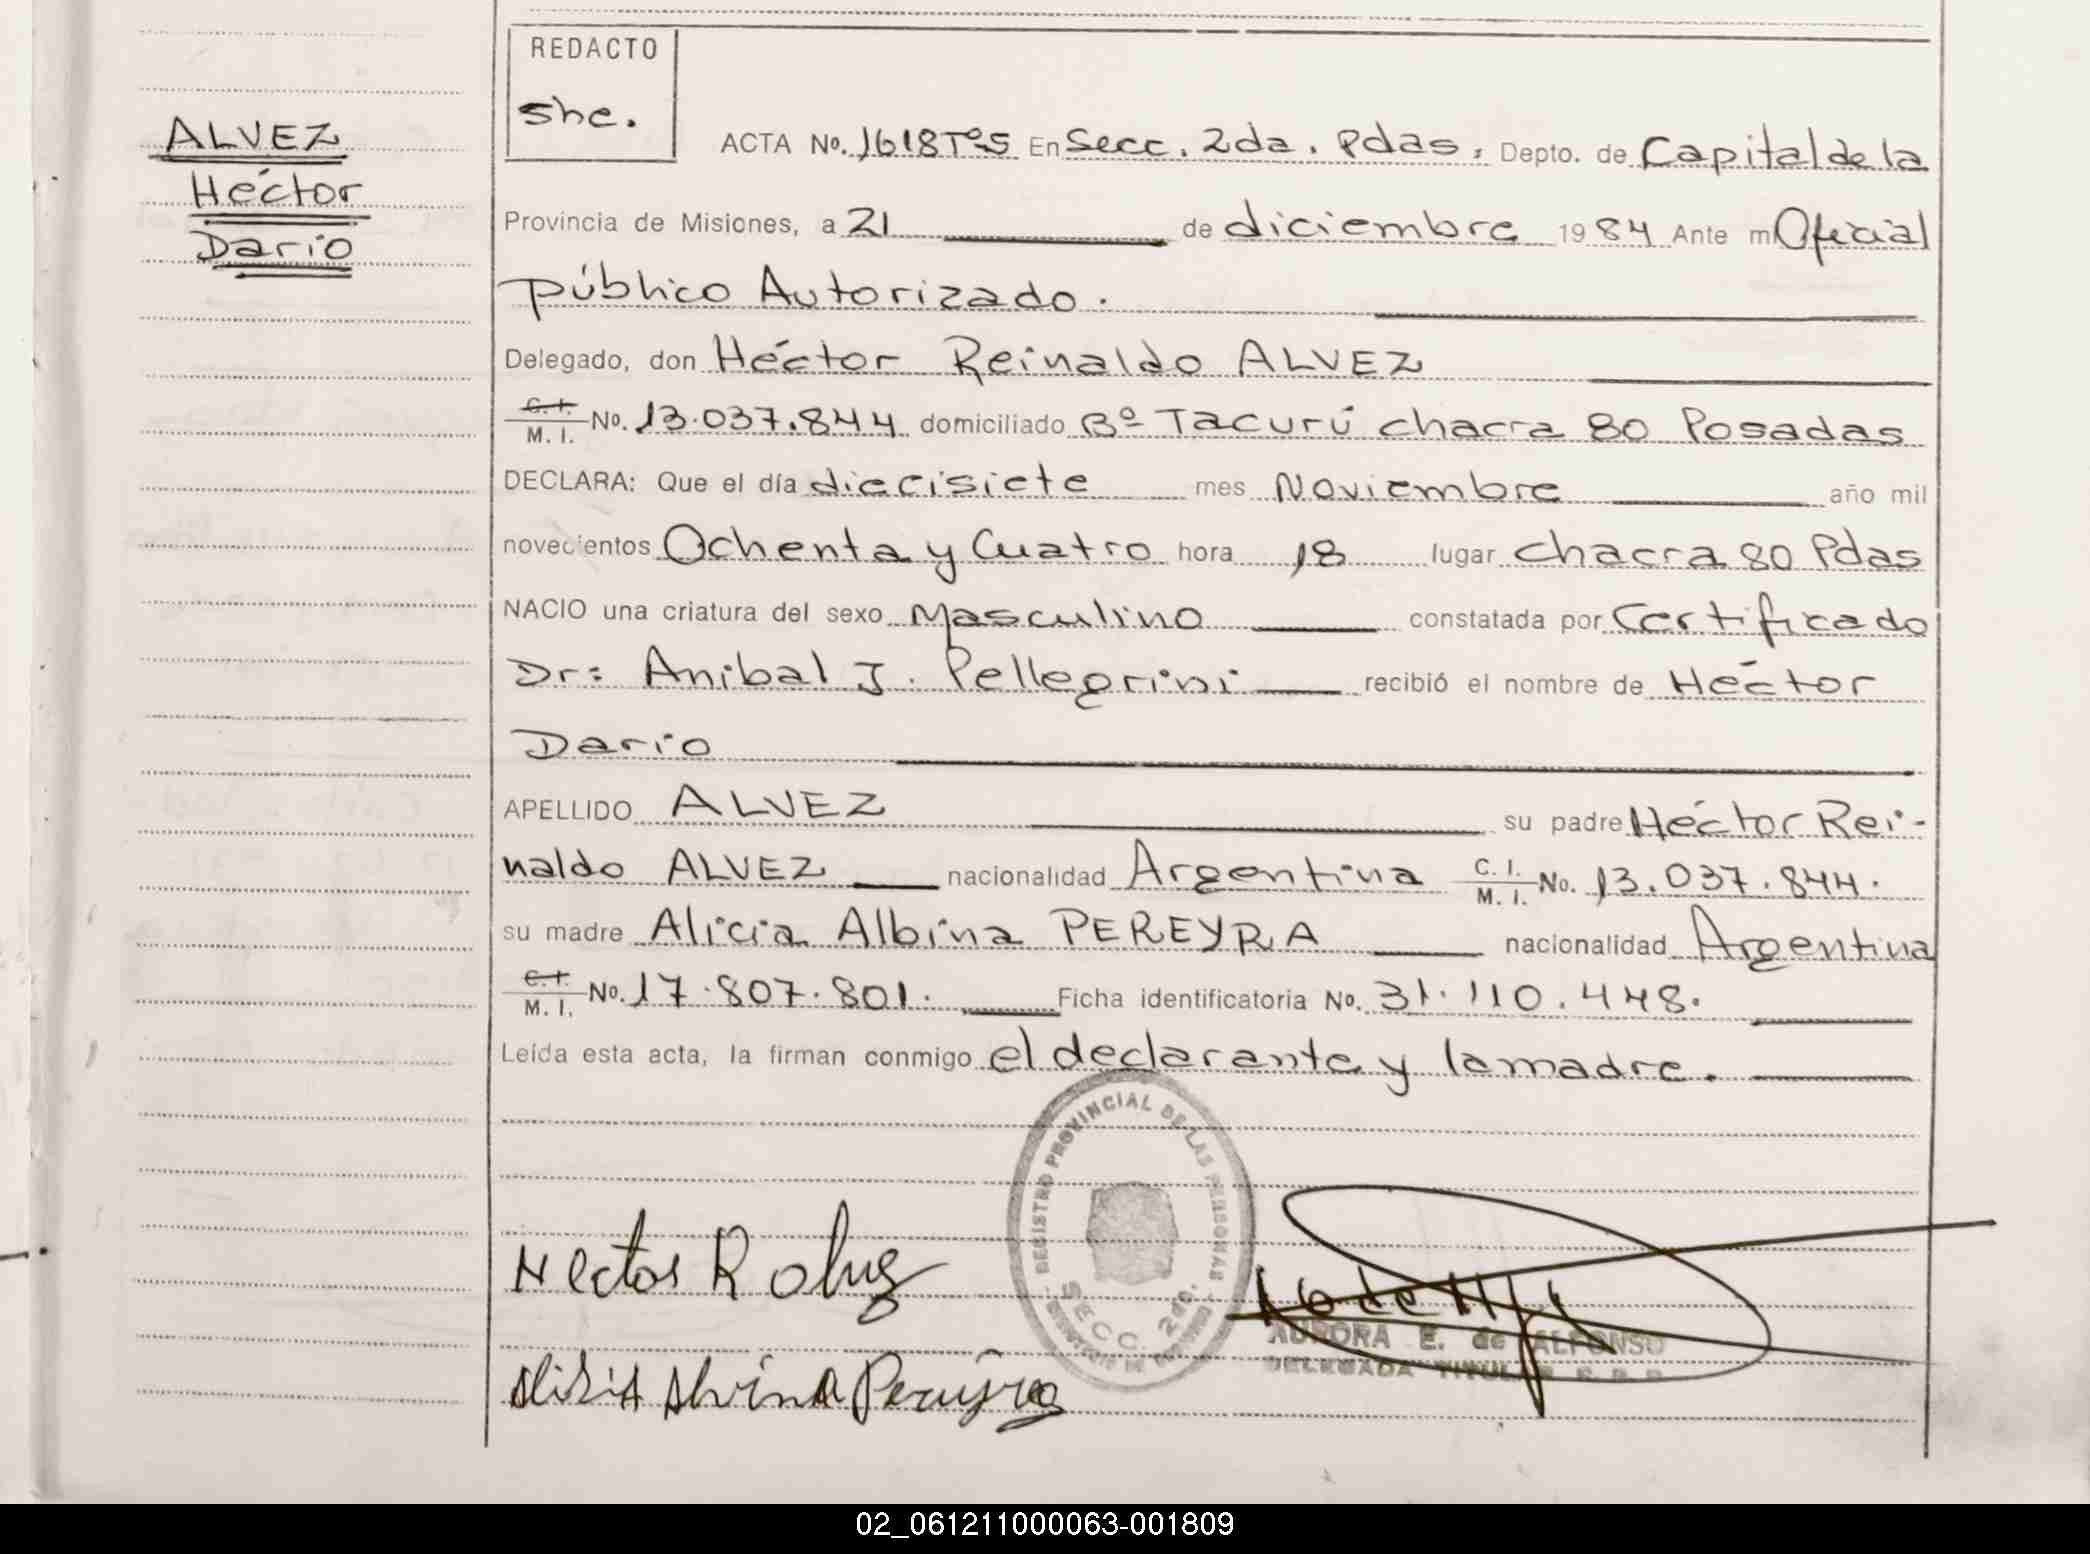 REDACTO
she.
ALVEZ
Héctor
Dario
ACTA No. 1618 Tº5 En Secc. 2da. Pdas, Depto. de Capital de la
Provincia de Misiones, a 21 de diciembre 1984 Ante mí Oficial
Público Autorizado.
Delegado, don Héctor Reinaldo ALVEZ
C. I.
M. I. No. 13.037.844 domiciliado Bº Tacurú chacra 80 Posadas
DECLARA: Que el día diecisiete mes Noviembre año mil
novecientos Ochenta y Cuatro hora 18 lugar chacra 80 Pdas
NACIO una criatura del sexo Masculino constatada por Certificado
Dr: Anibal J. Pellegrini recibió el nombre de Héctor
Dario
APELLIDO ALVEZ su padre Héctor Rei-
naldo ALVEZ nacionalidad Argentina C. I.
M. I. No. 13.037.844.
su madre Alicia Albina PEREYRA nacionalidad Argentina
C. I.
M. I. No. 17.807.801. Ficha identificatoria No. 31.110.448.
Leída esta acta, la firman conmigo el declarante y la madre.
REGISTRO PROVINCIAL DE LAS PERSONAS
SECC. 2da.
Hector R
AURORA E. de ALFONSO
DELEGADA TITULAR
02_061211000063-001809